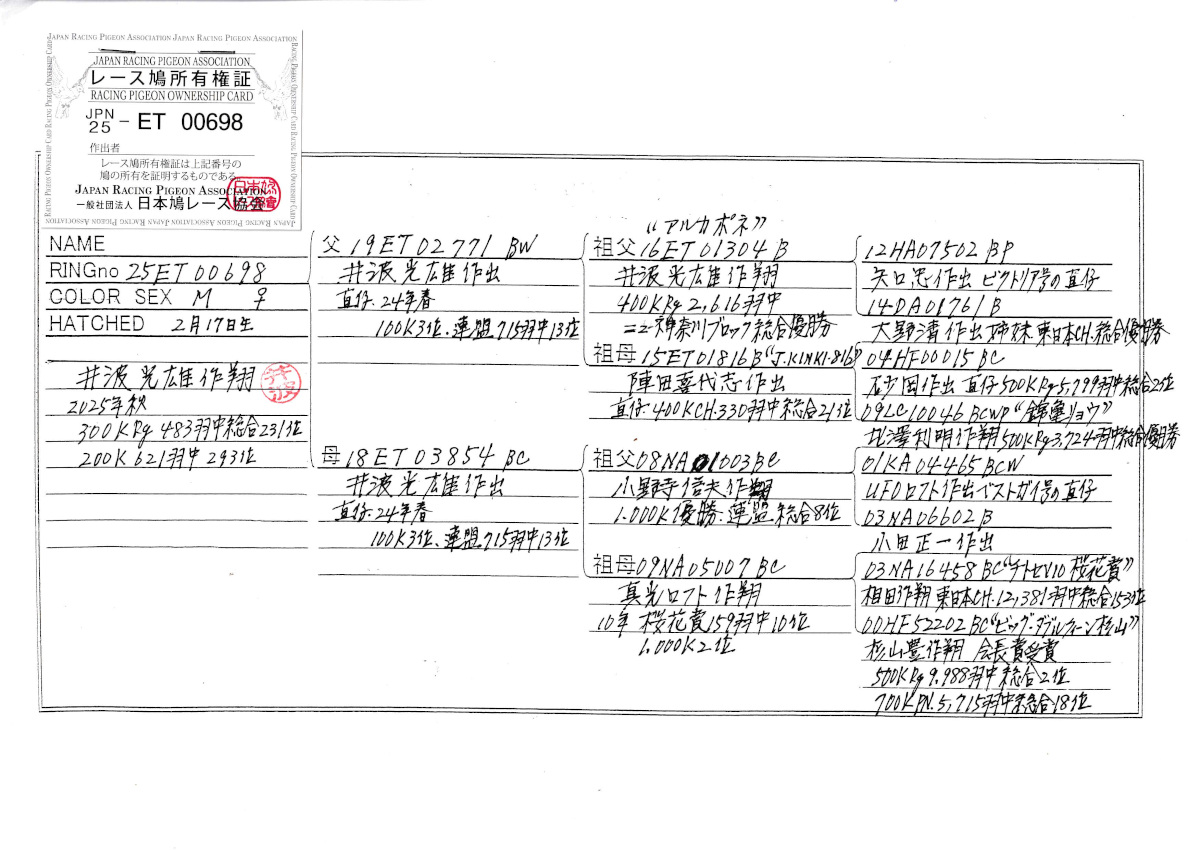 JAPAN RACING PIGEON ASSOCIATION JAPAN RACING PIGEON ASSOCIATION
RACING PIGEON OWNERSHIP CARD RACING PIGEON OWNERSHIP CARD
JAPAN RACING PIGEON ASSOCIATION
レース鳩所有権証
RACING PIGEON OWNERSHIP CARD
JPN 25 - ET 00698
作出者
レース鳩所有権証は上記番号の
鳩の所有を証明するものである。
JAPAN RACING PIGEON ASSOCIATION
一般社団法人 日本鳩レース協会
NAME
RINGno 25ET00698
COLOR SEX M ♀
HATCHED 2月17日生
井波光雄作翔
2025年秋
300KRg 483羽中総合231位
200K 621羽中293位
父 19ET02771 BW
井波光雄作出
直仔・24年春
100K3位、連盟715羽中13位
母 18ET03854 BC
井波光雄作出
直仔・24年春
100K3位、連盟715羽中13位
"アルカポネ"
祖父 16ET01304 B
井波光雄作翔
400KRg2,616羽中
ニュー神奈川ブロック総合優勝
祖母 15ET01816B "J.KINKI・816"
陣田喜代志作出
直仔・400KCH・330羽中総合21位
祖父 08NA01003BC
小野寺信夫作翔
1.000K優勝・連盟総合8位
祖母 09NA05007 BC
真光ロフト作翔
10年 桜花賞159羽中10位
1.000K2位
12HA07502 BP
矢口忠作出 ビクトリア号の直仔
14DA01761B
大野清作出 姉妹 東日本CH.総合優勝
04HF00015BC
砂岡作出 直仔500KRg5,799羽中総合2位
09LC10046BCWP "錦華リョウ"
北澤利明作翔500KRg3,724羽中総合優勝
01KA04465BCW
UFOロフト作出ベストガイ号の直仔
03NA06602B
小田正一作出
03NA16458BC "チトセV10 桜花賞"
相田作翔 東日本CH・12,381羽中総合153位
00HF52202BC "ビッグ・ダブルクィーン杉山"
杉山豊作翔 会長賞受賞
500KRg9.988羽中総合2位
700KPN.5,715羽中総合18位